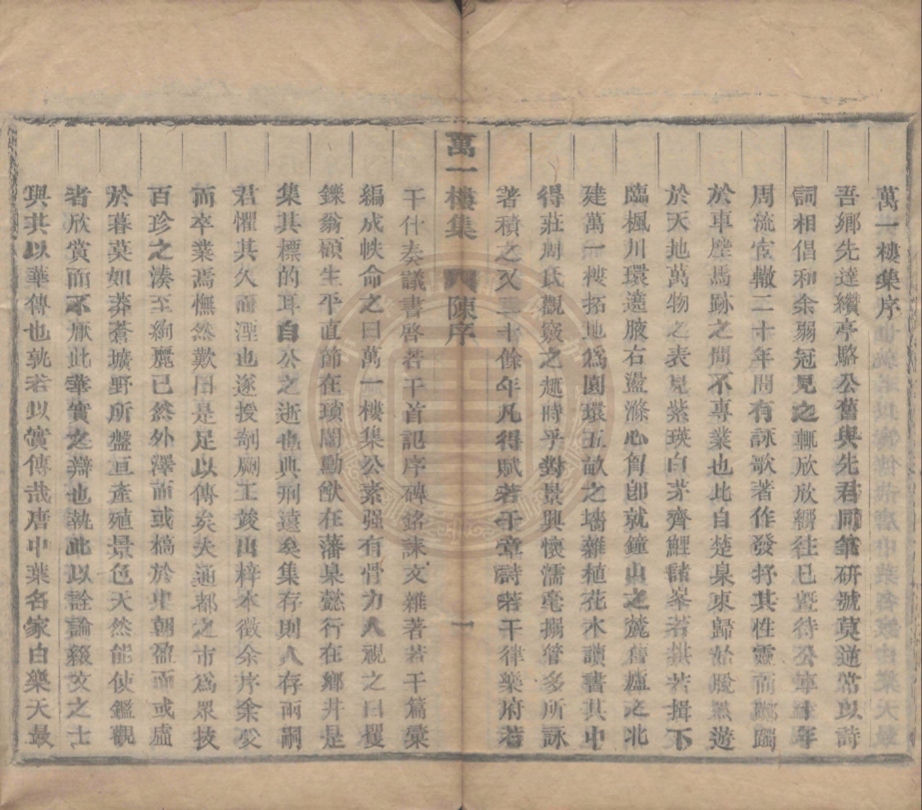 萬一樓集序
吾鄉先達纘亭駱公舊與先君同筆研號莫逆常以詩
詞相倡和余弱冠見之輒欣欣嚮往已暨待公車十年
周流宦轍二十年間有詠歌著作發抒其性靈而蹢躅
於車塵馬跡之間不專業也比自楚臬東歸始脫然遊
於天地萬物之表見紫瑛白茅齊鯉諸峯若拱若揖下
臨楓川環遶腋右盪滌心胷卽就鐘山之麓舊廬之北
建萬一樓拓地爲園環五畝之墻雜植花木讀書其中
得莊周氏觀竅之趣時乎對景興懷濡毫搦管多所詠
著積之又三十餘年凡得賦若干章詩若干律樂府若
萬一樓集 陳序 一
干什奏議書啓若干首記序碑銘誄文雜著若干篇彙
編成帙命之曰萬一樓集公素强有骨力人視之曰矍
鑠翁碩生平直節在瑣闥勳猷在藩臬懿行在鄉井是
集其標的耳自公之逝也典刑遠矣集存則人存兩嗣
君懼其久而湮也遂授剞劂工竣出梓本徵余序余受
而卒業焉憮然歎曰是足以傳矣夫通都之市爲眾技
百珍之湊至絢麗已然外澤而或槁於中朝盈而或虛
於暮莫如莽蒼壙野所盤亘產殖景色天然能使鑑觀
者欣賞而不厭此華實之辯也執此以詮論綴文之士
與其以華傳也孰若以實傳哉唐中葉名家白樂天最